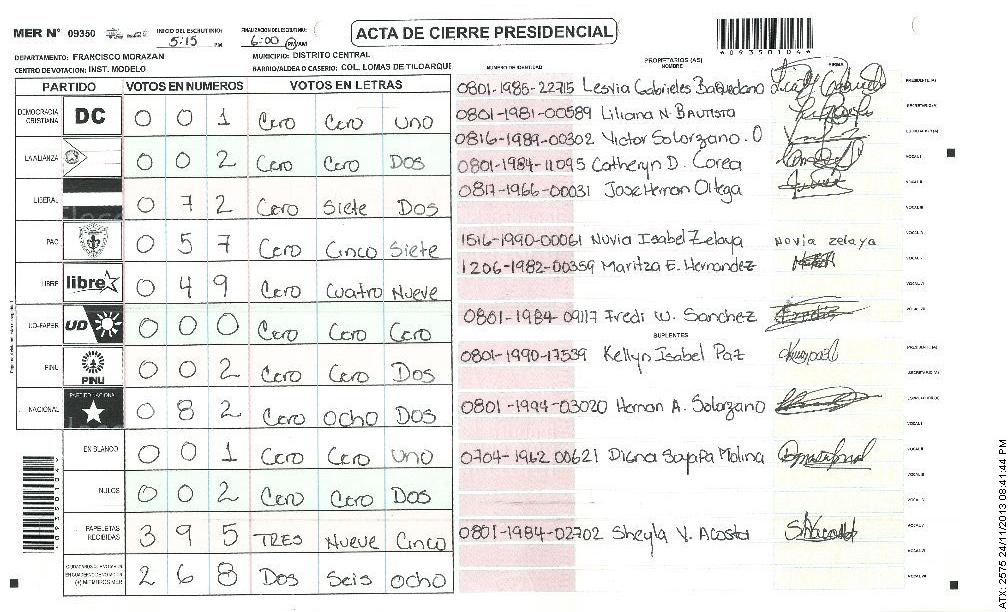 MER Nº 09350
INICIO DEL ESCRUTINIO: 5:15 PM
FINALIZACION DEL ESCRUTINIO: 6:00 PM/AM
ACTA DE CIERRE PRESIDENCIAL
*09350104*
DEPARTAMENTO: FRANCISCO MORAZAN
MUNICIPIO: DISTRITO CENTRAL
CENTRO DE VOTACION: INST. MODELO
BARRIO/ALDEA O CASERIO: COL. LOMAS DE TILOARQUE
PARTIDO VOTOS EN NUMEROS VOTOS EN LETRAS
DEMOCRACIA CRISTIANA DC 0 0 1 Cero Cero uno
LA ALIANZA 0 0 2 Cero Cero Dos
LIBERAL 0 7 2 Cero Siete Dos
PAC 0 5 7 Cero Cinco Siete
LIBRE libre 0 4 9 Cero Cuatro Nueve
UD-FAPER UD 0 0 0 Cero Cero Cero
PINU PINU 0 0 2 Cero Cero Dos
NACIONAL PARTIDO NACIONAL 0 8 2 Cero ocho Dos
EN BLANCO 0 0 1 Cero Cero uno
NULOS 0 0 2 Cero Cero Dos
PAPELETAS RECIBIDAS 3 9 5 TRES Nueve Cinco
(+) MIEMBROS MER 2 6 8 Dos Seis ocho
NUMERO DE IDENTIDAD PROPIETARIOS (AS) NOMBRE FIRMA
0801-1985-22715 Lesvia Gabrieles Baquedano PRESIDENTE (A)
0801-1981-00589 Liliana N. BAUTISTA SECRETARIO (A)
0816-1989-00302 Victor Solorzano. O
0801-1984-11095 Catheryn D. Corea VOCAL I
0817-1966-00031 Jose Hernan Ortega VOCAL II
VOCAL III
1516-1990-00061 Nuvia Isabel Zelaya Nuvia zelaya VOCAL IV
1206-1982-00359 Maritza E. Hernandez VOCAL V
VOCAL VI
0801-1984-09117 Fredi W. Sanchez VOCAL VII
SUPLENTES
0801-1990-17539 Kellyn Isabel Paz PRESIDENTE (A)
SECRETARIO (A)
0801-1994-03020 Hernan A. Solorzano
VOCAL I
0704-1962 00621 Digna Sayapa Molina VOCAL II
VOCAL III
VOCAL IV
0801-1984-02702 Sheyla V. Acosta SVAcosta VOCAL V
VOCAL VI
VOCAL VII
ATX: 2575 24/11/2013 08:41:44 PM